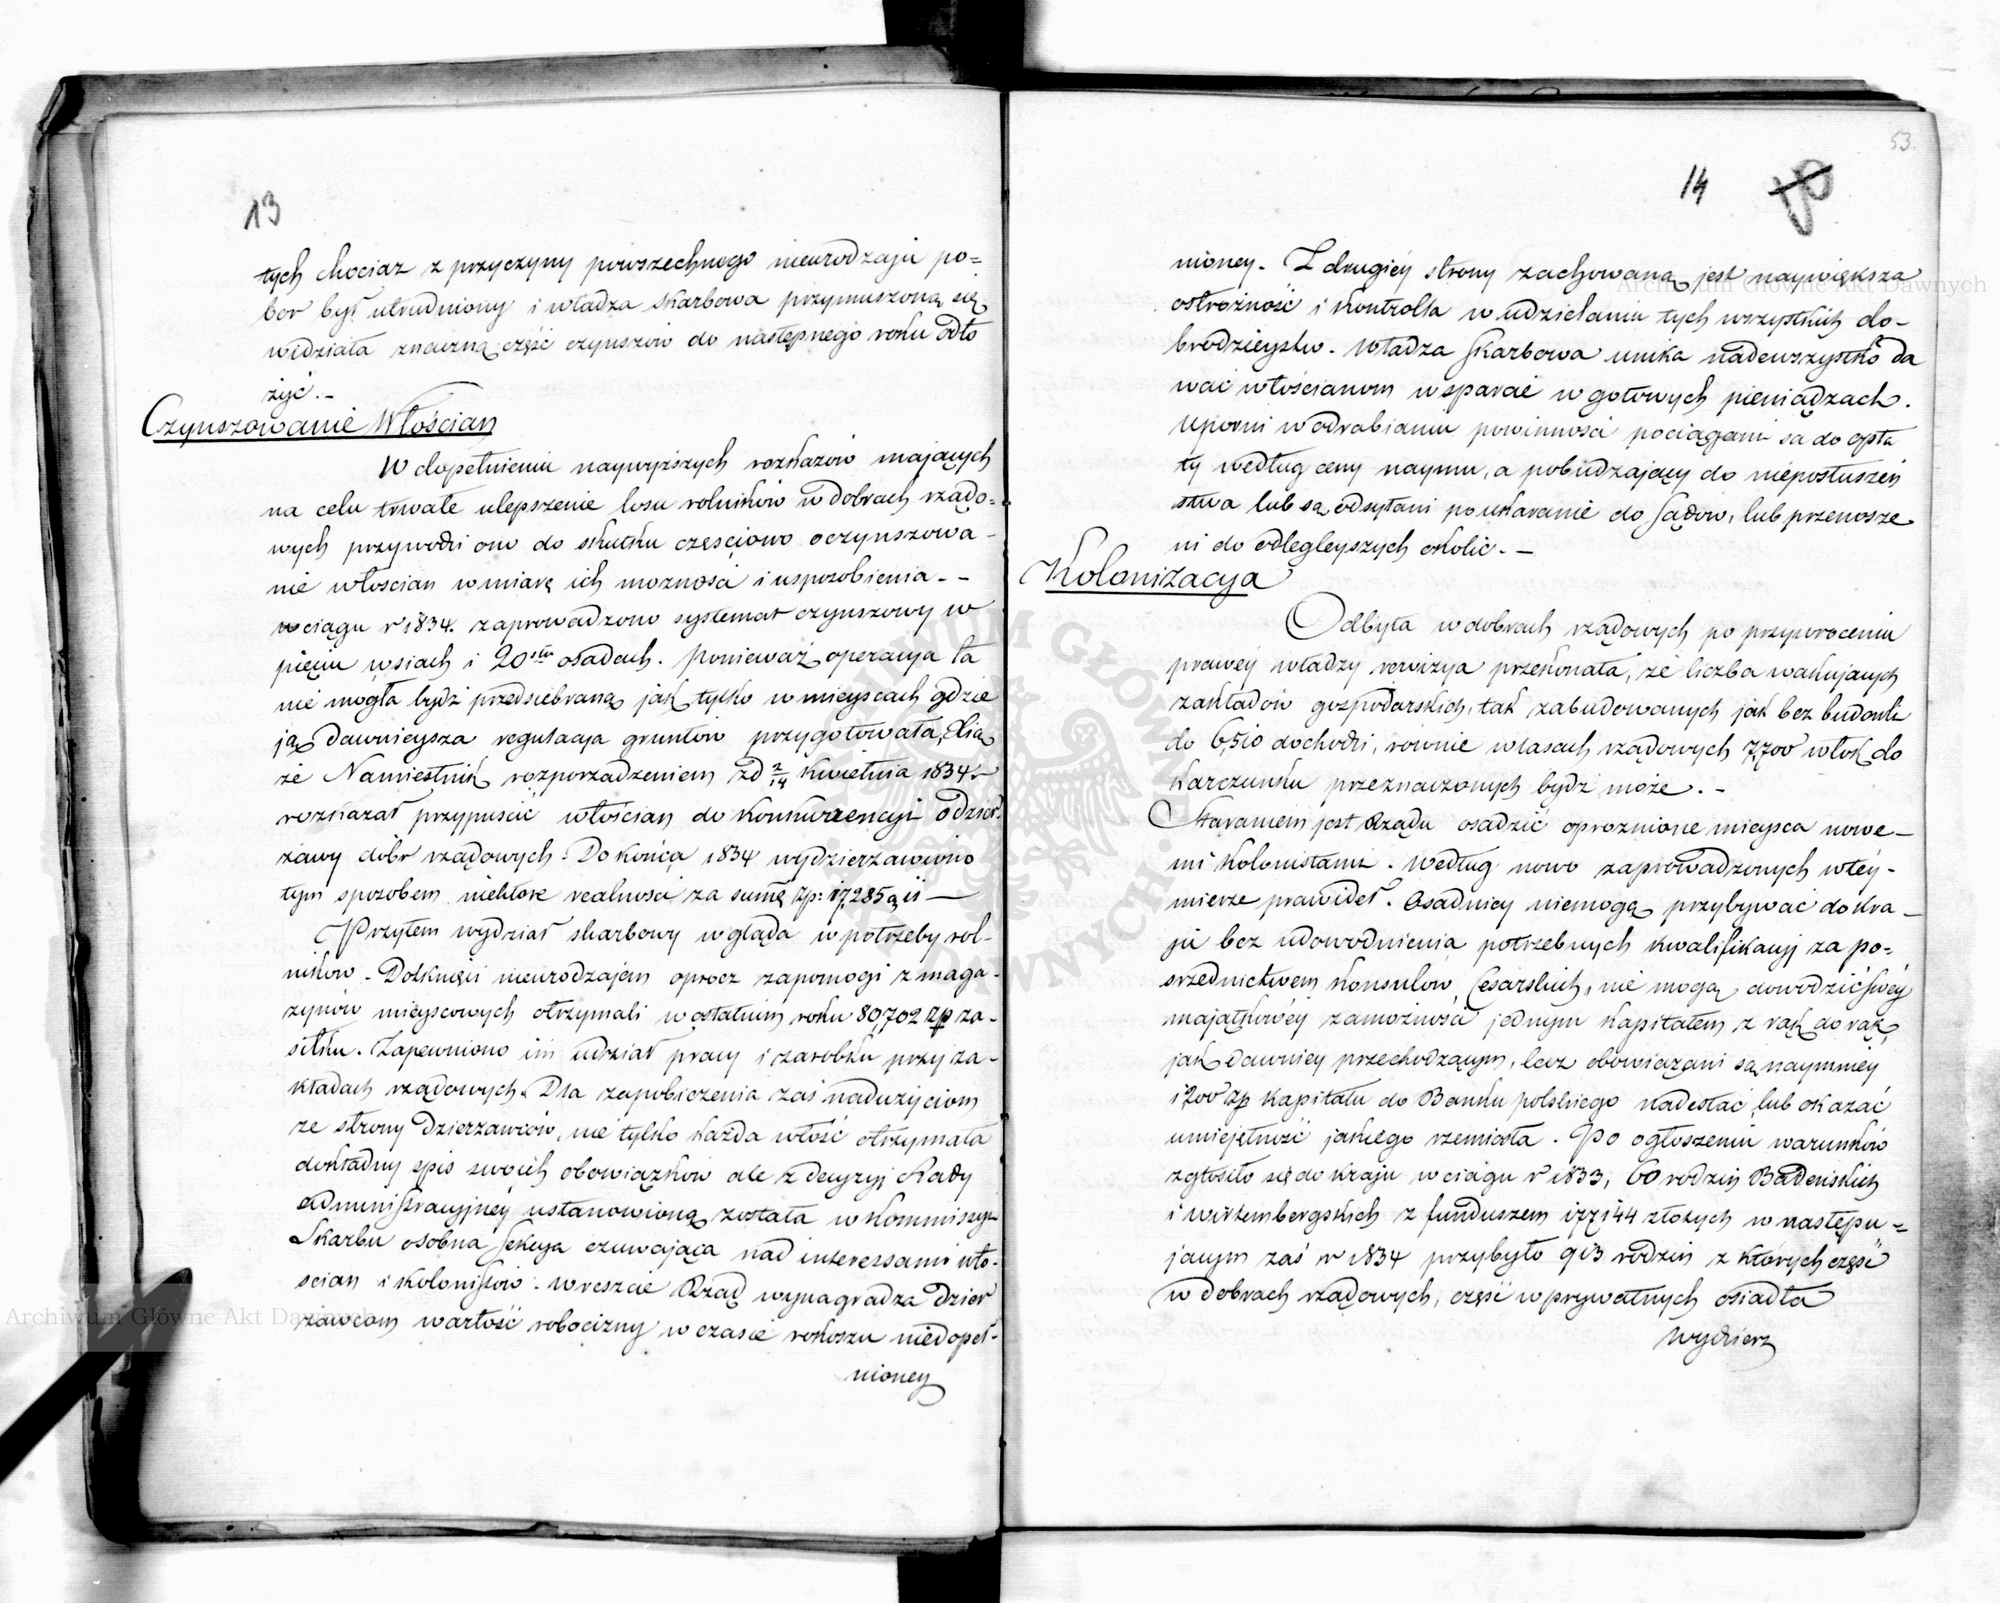 13
tych chociaz z przyczyny powszechnego nieurodzaju po=
bor był utrudniony i władza skarbowa przymuszoną się
widziała znaczną część czynszów do następnego roku odło
żyć.-
Czynszowanie Włościan
W dopełnieniu naywyższych rozkazów mających
na celu trwałe ulepszenie losu rolników w dobrach rządo-
wych przywodzi ono do skutku częsciowo oczynszowa-
nie włoscian w miarę ich mozności i usposobienia.--
w ciągu r 1834. zaprowadzono systemat czynszowy w
pięciu wsiach i 20stu osadach. Ponieważ operacya ta
nie mogła bydz przedsiebraną jak tylko w mieyscach gdzie
ją dawnieysza regulacya gruntów przygotowała, Xią
że Namiestnik rozporządzeniem zd 2/14 Kwietnia 1834 r
rozkazał przypuscić włościan do konkurrencyi o dzier
żawy dóbr rządowych. Do końca 1834 wydzierżawiono
tym sposobem niektóre realności za sumę zp: 17,285 g 11 —
Przytem wydział skarbowy wgląda w potrzeby rol-
ników. Dotknięci nieurodzajem oprocz zapomogi z maga-
zynów mieyscowych otrzymali w ostatnim roku 80,702 zp za-
siłku. Zapewniono im udział pracy i zarobku przy za-
kładach rządowych. Dla zapobieżenia zaś nadużyciom
ze strony Dzierzawców, nie tylko każda włość otrzymała
dokładny spis swoich obowiązków ale z decyzyi Rady
Administracyjnéy ustanowioną została w Kommissyi
Skarbu osobna Sekcya czuwająca nad interessami wło-
scian i kolonistów. Wreszcie Rząd wynagradza Dzier
zawcom wartość robocizny w czasie rokoszu niedopeł-
nioney
53.
14
nioney. Z drugiéy strony zachowaną jest naywiększa
ostrożność i kontrolla w udzielaniu tych wszystkich do-
brodzieystw. Władza Skarbowa unika nadewszystko da
wać włościanom wsparcie w gotowych pieniądzach.
Uporni w odrabianiu powinności pociągani są do opła
ty według ceny naymu, a pobudzający do nieposłuszeń
stwa lub są odsyłani po ukaranie do Sądów, lub przenosze
ni do odlegleyszych okolic.-
Kolonizacya
Odbyta w dobrach rządowych po przywroceniu
prawéy władzy rewizya przekonała, że liczba wakujących
zakładów gospodarskich, tak zabudowanych jak bez budowli
do 6,510 dochodzi, rownie w lasach rządowych 7,700 włok do
karczunku przeznaczonych bydz może.-
Staraniem jest Rządu osadzić oproznione mieysca nowe-
mi kolonistami. Według nowo zaprowadzonych w téy-
mierze prawideł. Osadnicy niemogą przybywać do Kra-
ju bez udowodnienia potrzebnych kwalifikacyj za po-
srzednictwem Konsulow Cesarskich, nie mogą dowodzić swéy
majątkowéy zamożności jednym kapitałem z rąk do rąk,
jak dawniey przechodzącym, lecz obowiązani są naymniéy
1200 zp kapitału do Banku polskiego nadesłać lub okazać
umiejętność jakiego rzemiosła. Po ogłoszeniu warunków
zgłosiło się do kraju w ciągu r 1833, 60 rodzin Badeńskich
i wirtembergskich z funduszem 177144 złotych w następu-
jącym zaś r 1834 przybyło 913 rodzin z których część
w dobrach rządowych, część w prywatnych osiadła
Wydzierz